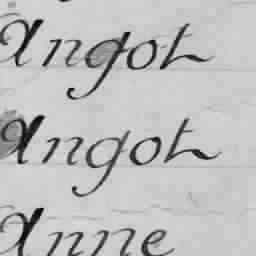 Angot
Angot
Anne